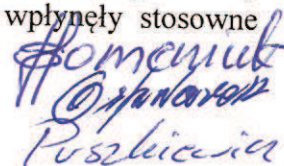 wpłynęły stosowne
Homeniuk
Puszkiewicz